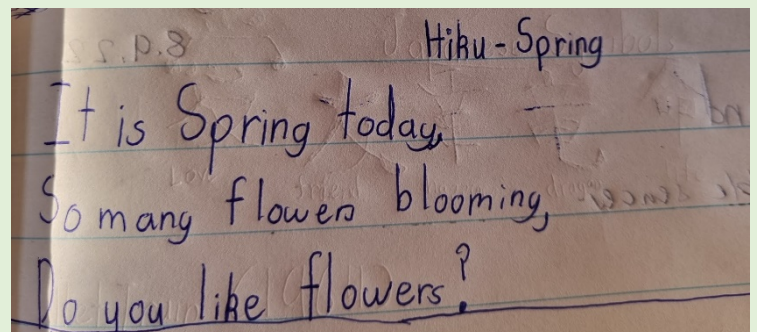 Hiku - Spring
It is Spring today,
So mang flowers blooming,
Do you like flowers?